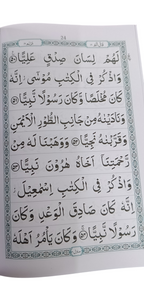 لَهُمْ لِسَانَ صِدْقٍ عَلِيًّا ۝٥٠
وَاذْكُرْ فِى الْكِتٰبِ مُوْسٰٓى ز اِنَّهٗ
كَانَ مُخْلَصًا وَّكَانَ رَسُوْلًا نَّبِيًّا ۝٥١
وَنَادَيْنٰهُ مِنْ جَانِبِ الطُّوْرِ الْاَيْمَنِ
وَقَرَّبْنٰهُ نَجِيًّا ۝٥٢ وَوَهَبْنَا لَهٗ مِنْ
رَّحْمَتِنَآ اَخَاهُ هٰرُوْنَ نَبِيًّا ۝٥٣
وَاذْكُرْ فِى الْكِتٰبِ اِسْمٰعِيْلَ ز
اِنَّهٗ كَانَ صَادِقَ الْوَعْدِ وَكَانَ
رَسُوْلًا نَّبِيًّا ۝٥٤ وَكَانَ يَاْمُرُ اَهْلَهٗ